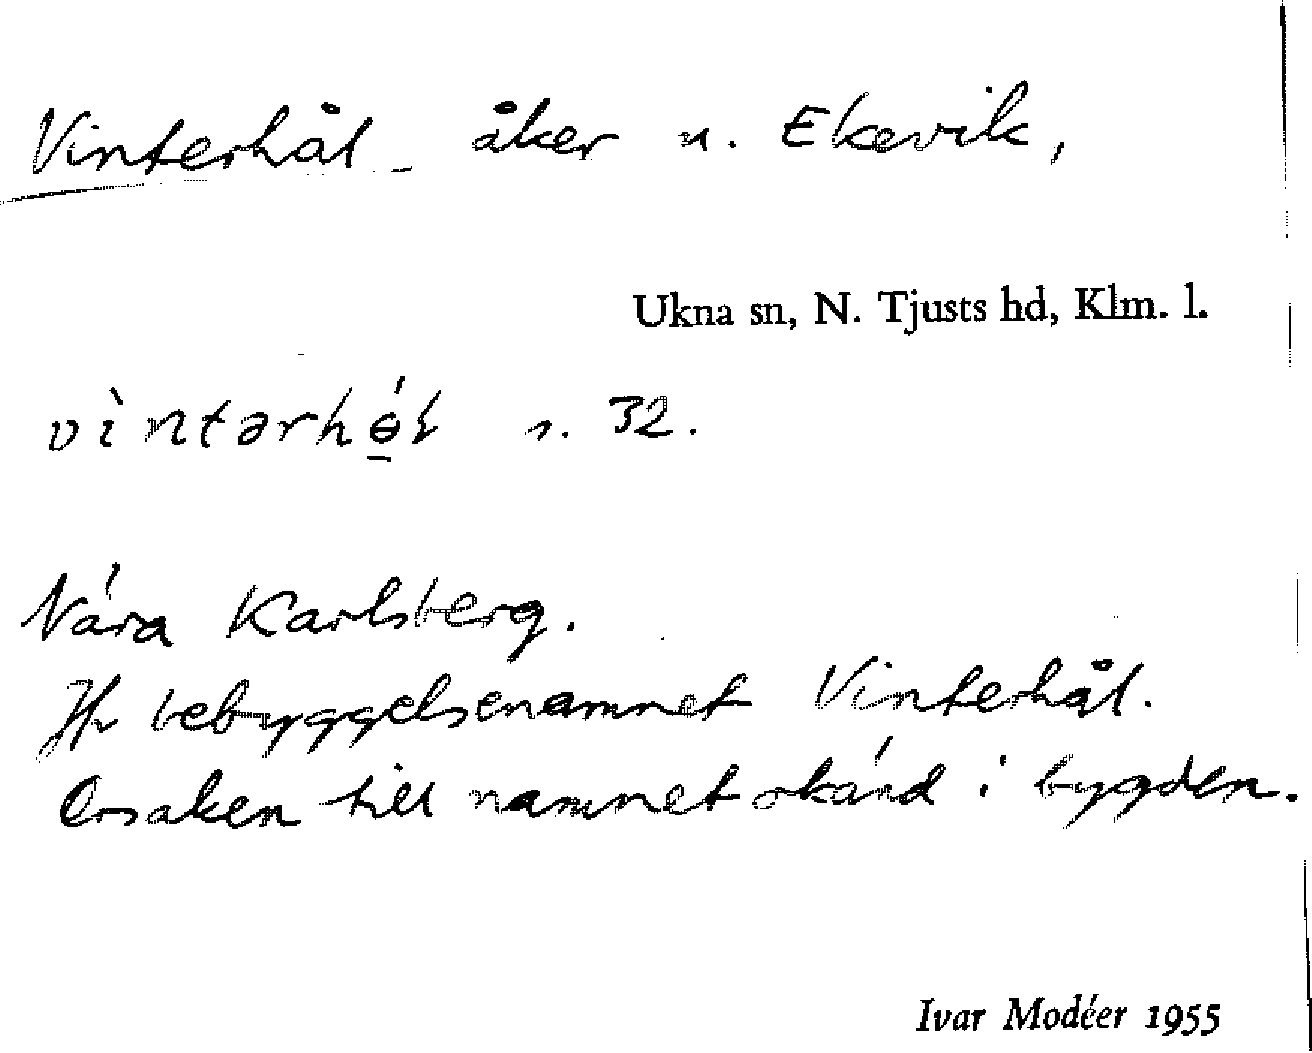 Vinterhål åker u. Ekevik,
Ukna sn, N. Tjusts hd, Klm. l.
vìntərhó̱l s. 32.
Nära Karlsberg.
Jfr bebyggelsenamnet Vinterhål.
Orsaken till namnet okänd i bygden.
Ivar Modéer 1955